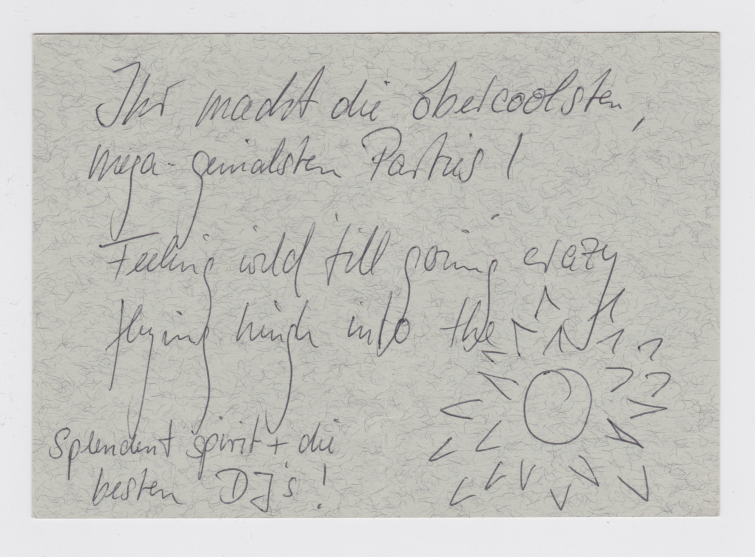 Ihr macht die obercoolsten,
mega-genialsten Parties!
Feeling wild till going crazy
flying hingh into the
splendent spirit + die
besten DJ's!